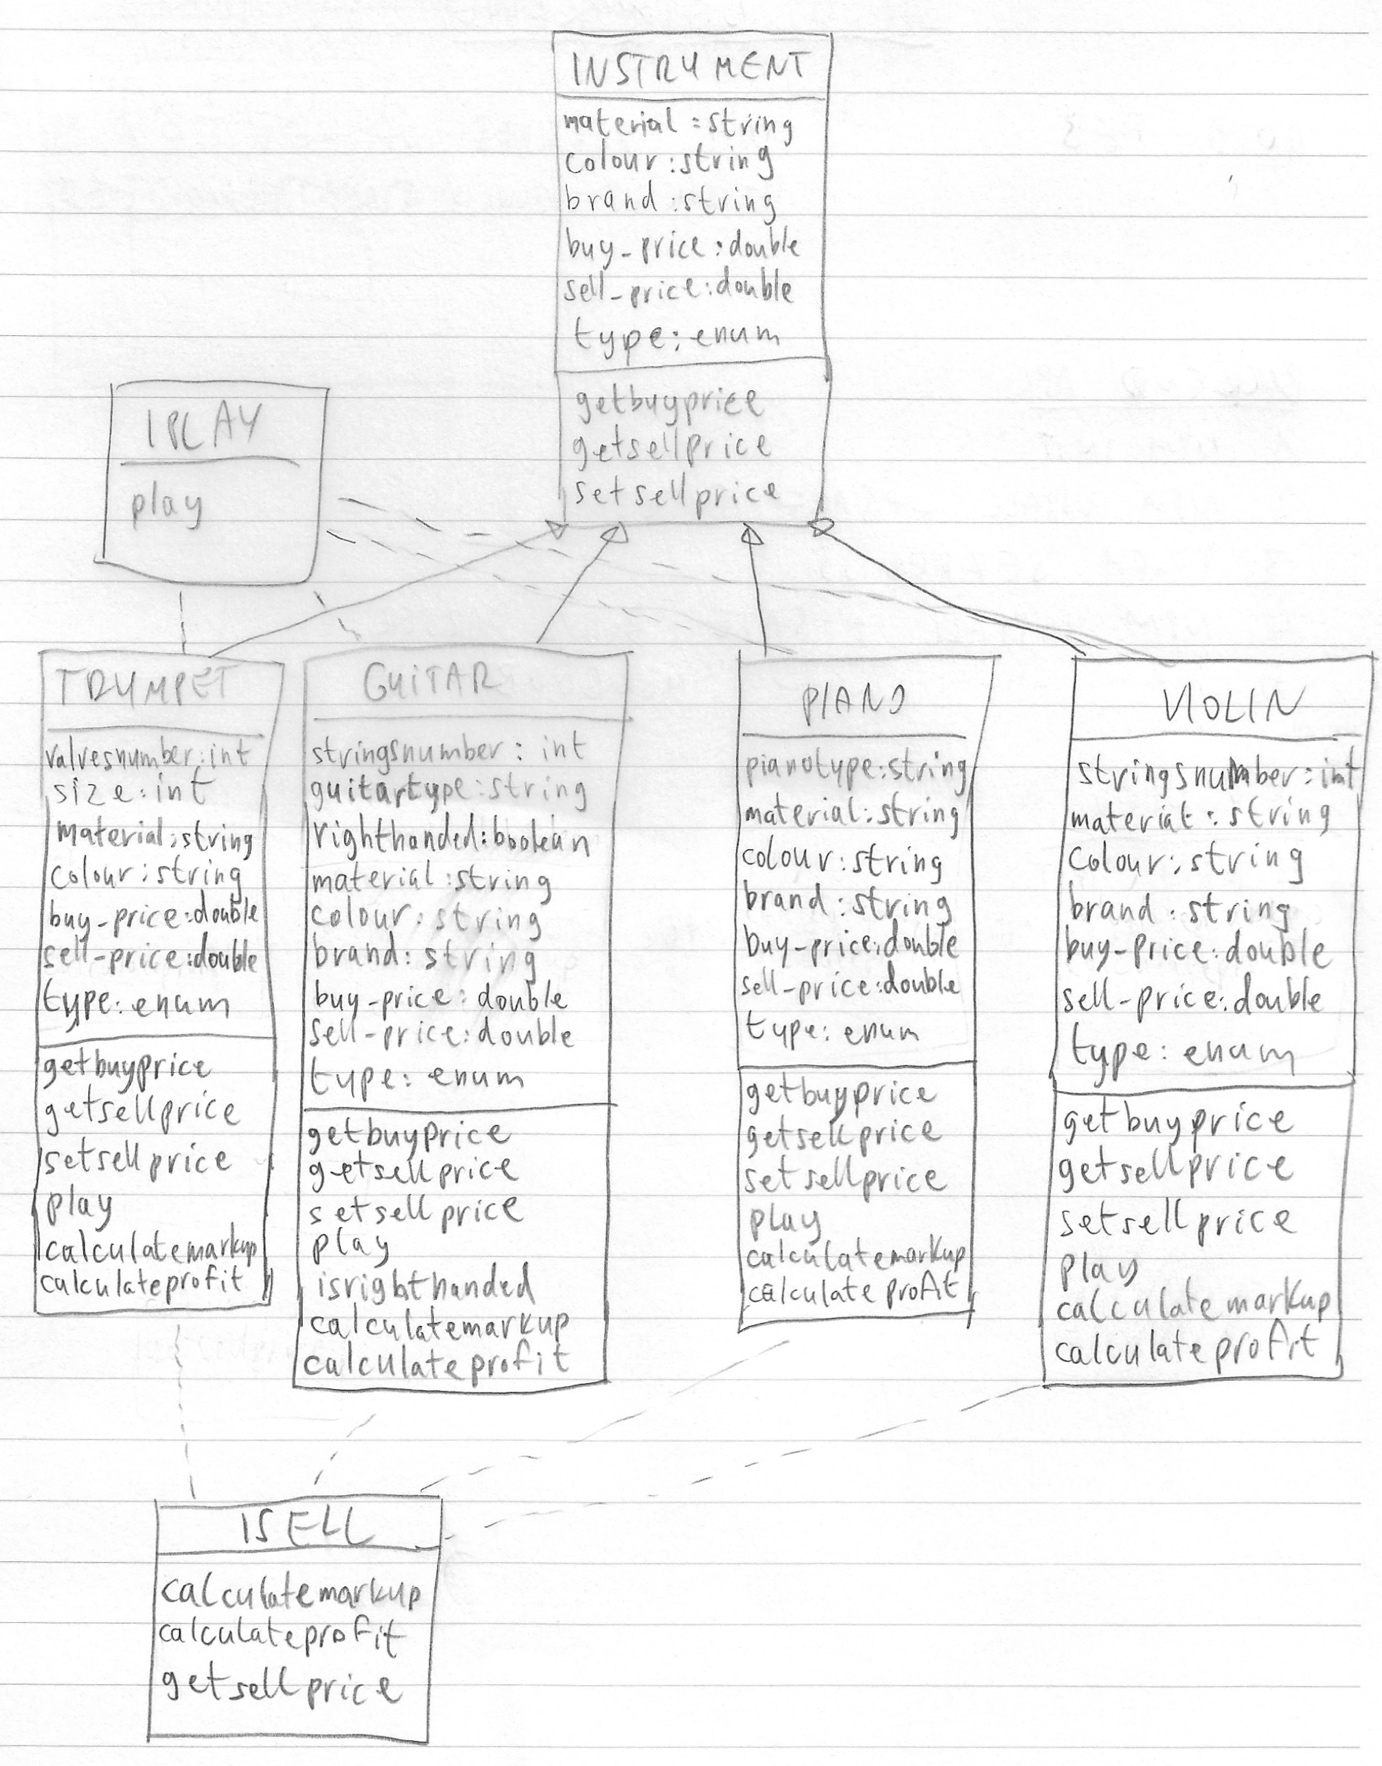 INSTRUMENT
material:string
colour:string
brand:string
buy_price:double
sell-price:double
type:enum
getbuyprice
getsellprice
setsellprice
IPLAY
play
TRUMPET
valvesnumber:int
size:int
material:string
colour:string
buy-price:double
sell-price:double
type:enum
getbuyprice
getsellprice
setsellprice
play
calculatemarkup
calculateprofit
GUITAR
stringsnumber: int
guitartype:string
righthanded:boolean
material:string
colour:string
brand:string
buy-price: double
sell-price:double
type: enum
getbuyprice
getsellprice
setsellprice
play
isrighthanded
calculatemarkup
calculateprofit
PIANO
pianotype:string
material:string
colour:string
brand:string
buy-price:double
sell-price:double
type: enum
getbuyprice
getsellprice
setsellprice
play
calculatemarkup
calculateprofit
VIOLIN
stringsnumber:int
material:string
colour:string
brand:string
buy-price:double
sell-price:double
type: enum
getbuyprice
getsellprice
setsellprice
play
calculatemarkup
calculateprofit
ISELL
calculatemarkup
calculateprofit
getsellprice